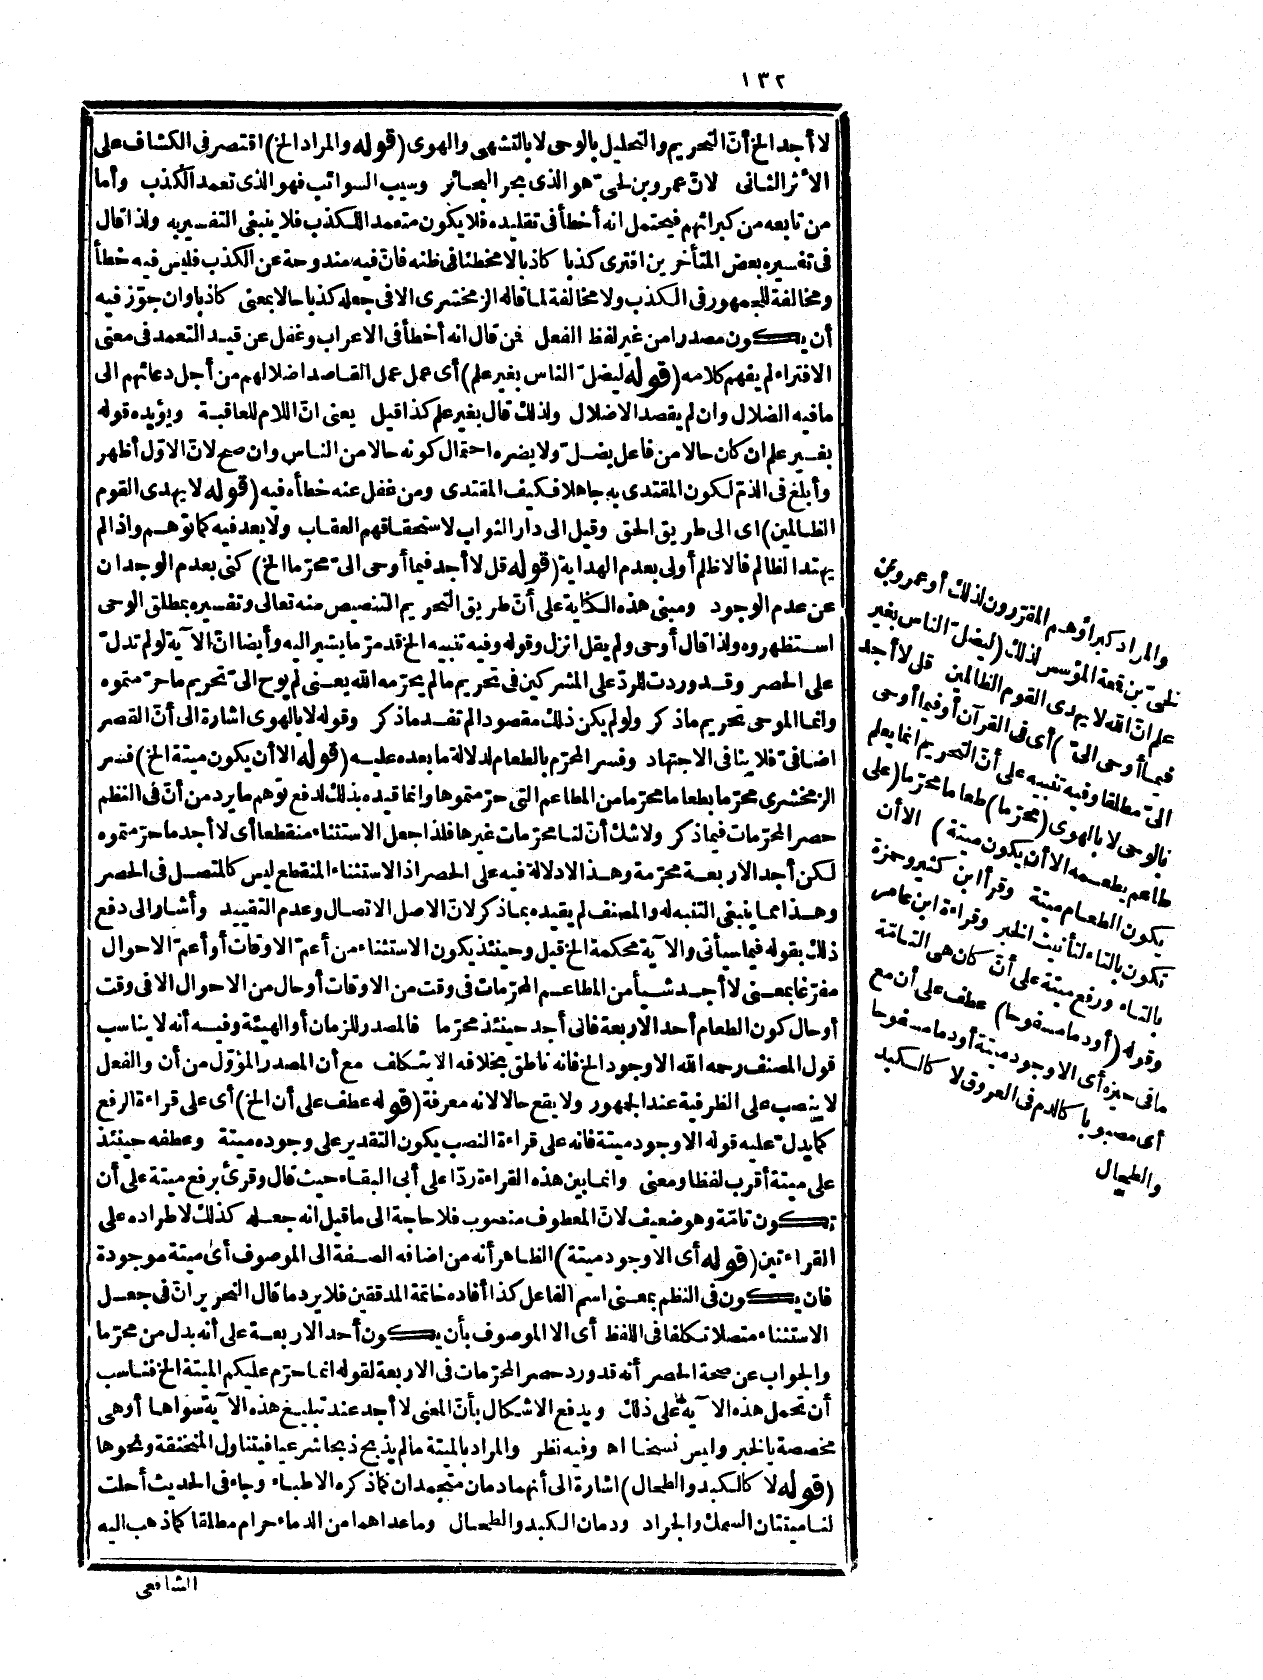 ١٣٢
لا أجد الخ أنّ التحريم والتحليل بالوحى لا بالتشهى والهوى (قوله والمراد الخ) اقتصر فى الكشاف على
الأثر الثانى لانّ عمرو بن لحىّ هو الذى بحر البحائر وسيب السوائب فهو الذى تعمد الكذب وأما
من تابعه من كبرائهم فيحتمل انه أخطأ فى تقليده فلا يكون متعمد اللكذب فلا ينبغى التفسير به ولذا قال
فى تفسيره بعض المتأخرين افترى كذبا كاذبا لا مخطئا فى ظنه فانّ فيه مندوحة عن الكذب فليس فيه خطأ
ومخالفة للجمهور فى الكذب ولا مخالفة لما قاله الزمخشرى الا فى جعله كذبا حالا بمعنى كاذبا وان جوّز فيه
أن يكون مصدرا من غير لفظ الفعل فمن قال انه أخطأ فى الاعراب وغفل عن قيد التعمد فى معنى
الافتراء لم يفهم كلامه (قوله ليضلّ الناس بغير علم) أى عمل عمل القاصد اضلالهم من أجل دعائهم الى
ما فيه الضلال وان لم يقصد الاضلال ولذلك قال بغير علم كذا قيل يعنى انّ اللام للعاقبة ويؤيده قوله
بغير علم ان كان حالا من فاعل يضلّ ولا يضره احتمال كونه حالا من الناس وان صح لانّ الاوّل أظهر
وأبلغ فى الذمّ لكون المقتدى به جاهلا فكيف المقتدى ومن غفل عنه خطأه فيه (قوله لا يهدى القوم
الظالمين) اى الى طريق الحق وقيل الى دار الثواب لاستحقاقهم العقاب ولا بعد فيه كما توهم واذا لم
يهتد الظالم فالاظلم أولى بعدم الهداية (قوله قل لا أجد فيما أوحى الىّ محرّما الخ) كنى بعدم الوجدان
عن عدم الوجود ومبنى هذه الكناية على أنّ طريق التحريم التنصيص منه تعالى وتفسيره بمطلق الوحى
استظهروه ولذا قال أوحى ولم يقل انزل وقوله وفيه تنبيه الخ قد مرّ ما يشير اليه وأيضا انّ الآية لو لم تدلّ
على الحصر وقد وردت للردّ على المشركين فى تحريم ما لم يحرّمه الله يعنى لم يوح الىّ تحريم ما حرّمتموه
وانما الموحى تحريم ما ذكر ولو لم يكن ذلك مقصودا لم تفد ما ذكر وقوله لا بالهوى اشارة الى أنّ القصر
اضافىّ فلا ينافى الاجتهاد وفسر المحرّم بالطعام لدلالة ما بعده عليه (قوله الا أن يكون ميتة الخ) فسر
الزمخشرى محرّما بطعاما محرّما من المطاعم التى حرّمتموها وانما قيده بذلك لدفع توهم ما يرد من أنّ فى النظم
حصر المحرّمات فيما ذكر ولا شك أنّ لنا محرّمات غيرها فلذا جعل الاستثناء منقطعا أى لا أجد ما حرّمتموه
لكن أجد الاربعة محرّمة وهذا لا دلالة فيه على الحصر اذ الاستثناء المنقطع ليس كالمتصل فى الحصر
وهذا مما ينبغى التنبه له والمصنف لم يقيده بما ذكر لانّ الاصل الاتصال وعدم التقييد وأشار الى دفع
ذلك بقوله فيما سيأتى والآية محكمة الخ قيل وحينئذ يكون الاستثناء من أعمّ الاوقات أو أعمّ الاحوال
مفرّغا بمعنى لا أجد شيأ من المطاعم المحرّمات فى وقت من الاوقات أو حال من الاحوال الا فى وقت
أو حال كون الطعام أحد الاربعة فانى أجد حينئذ محرّما فالمصدر للزمان أو الهيئة وفيه أنه لا يناسب
قول المصنف رحمه الله الا وجود الخ فانه ناطق بخلافه الا بتكلف مع أن المصدر المؤوّل من أن والفعل
لا ينصب على الظرفية عند الجمهور ولا يقع حالا لانه معرفة (قوله عطف على أن الخ) أى على قراءة الرفع
كما يدلّ عليه قوله الا وجود ميتة فانه على قراءة النصب يكون التقدير على وجوده ميتة وعطفه حينئذ
على ميتة أقرب لفظا ومعنى وانما بين هذه القراءة ردّا على أبى البقاء حيث قال وقرئ برفع ميتة على أن
تكون تامّة وهو ضعيف لانّ المعطوف منصوب فلا حاجة الى ما قيل انه جعله كذلك لاطراده على
القراءتين (قوله أى الا وجود ميتة) الظاهر أنه من اضافه الصفة الى الموصوف أى ميتة موجودة
فان يكون فى النظم بمعنى اسم الفاعل كذا أفاده خاتمة المدققين فلا يرد ما قال النحرير انّ فى جعل
الاستثناء متصلا تكلفا فى اللفظ أى الا الموصوف بأن يكون أحد الاربعة على أنه بدل من محرّما
والجواب عن صحة الحصر أنه قد ورد حصر المحرّمات فى الاربعة لقوله انما حرّم عليكم الميتة الخ فناسب
أن تحمل هذه الآية على ذلك ويدفع الاشكال بأنّ المعنى لا أجد عند تبليغ هذه الآية سواها أو هى
مخصصة بالخبر وليس نسخا اه وفيه نظر والمراد بالميتة ما لم يذبح ذبحا شرعيا فيتناول المنخنقة ونحوها
(قوله لا كالكبد والطحال) اشارة الى أنهما دمان متجمدان كما ذكره الاطباء وجاء فى الحديث أحلت
لنا ميتتان السمك والجراد ودمان الكبد والطحال وما عداهما من الدماء حرام مطلقا كما ذهب اليه
الشافعى
والمراد كبراؤهم المقررون لذلك أو عمرو بن
لحىّ بن قمعة المؤسس لذلك (ليضلّ الناس بغير
علم انّ الله لا يهدى القوم الظالمين قل لا أجد
فيما أوحى الىّ) أى فى القرآن أو فيما أوحى
الىّ مطلقا وفيه تنبيه على أنّ التحريم انما يعلم
بالوحى لا بالهوى (محرّما) طعاما محرّما (على
طاعم يطعمه الا أن يكون ميتة) الا أن
يكون الطعام ميتة وقرأ ابن كثير وحمزة
تكون بالتاء لتأنيث الخبر وقراءة ابن عامر
بالتاء ورفع ميتة على أنّ كان هى التامّة
وقوله (أو دما مسفوحا) عطف على أن مع
ما فى حيزه أى الا وجود ميتة أو دما مسفوحا
أى مصبوبا كالدم فى العروق لا كالكبد
والطحال